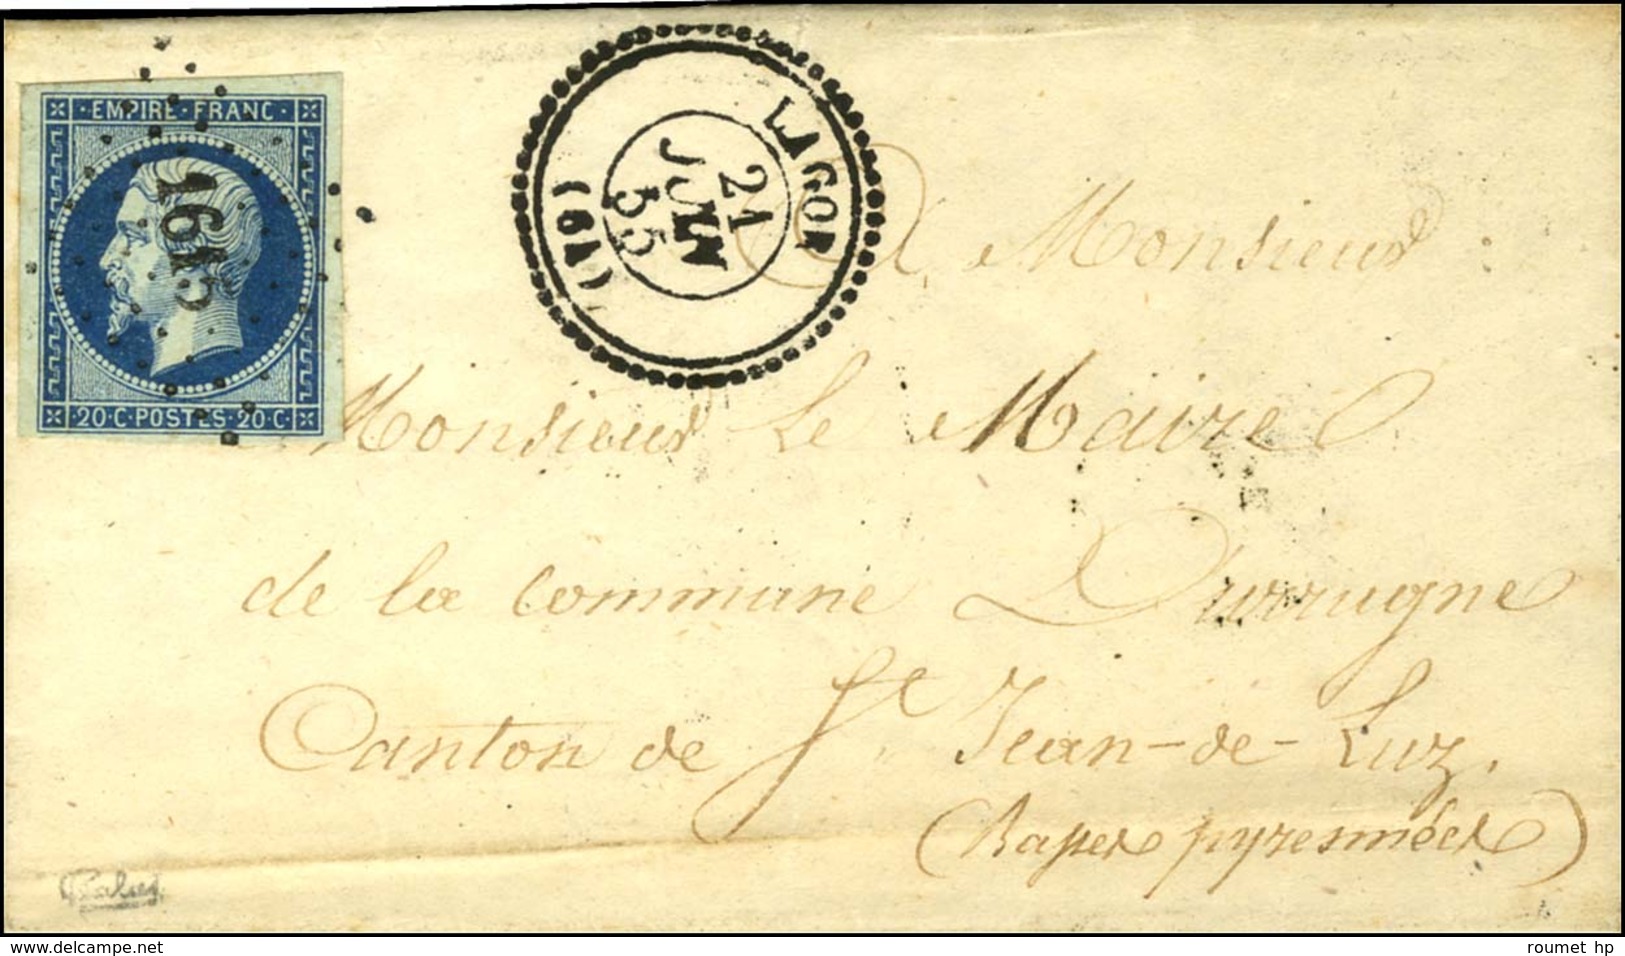 · EMPIRE · FRANC ·
1615
· 20 · C · POSTES · 20 · C ·
LAGOR
21
JUIN
55
(64)
A Monsieur
Monsieur Le Maire
de la commune Durrugne
Canton de St Jean-de-Luz.
(Basses pyrennées)
delcampe.net
roumet hp